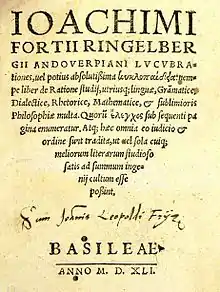 IOACHIMI
FORTII RINGELBER
GII ANDOVERPIANI LVCVBRA-
tiones, uel potius absolutissima κυκλοπαιδεία: nem-
pe liber de Ratione studij, utriusq; linguæ, Grãmatice,
Dialectice, Rhetorice, Mathematice, & sublimioris
Philosophiæ multa. Quorũ ἔλεγχος sub sequenti pa
gina enumeratur. Atq; hæc omnia eo iudicio &
ordine sunt tradita, ut uel sola cuiq;
meliorum literarum studioso
satis ad summum inge-
nij cultum esse
possint.
Sum Johannis Leopoldi
BASILEAE
ANNO M. D. XLI.